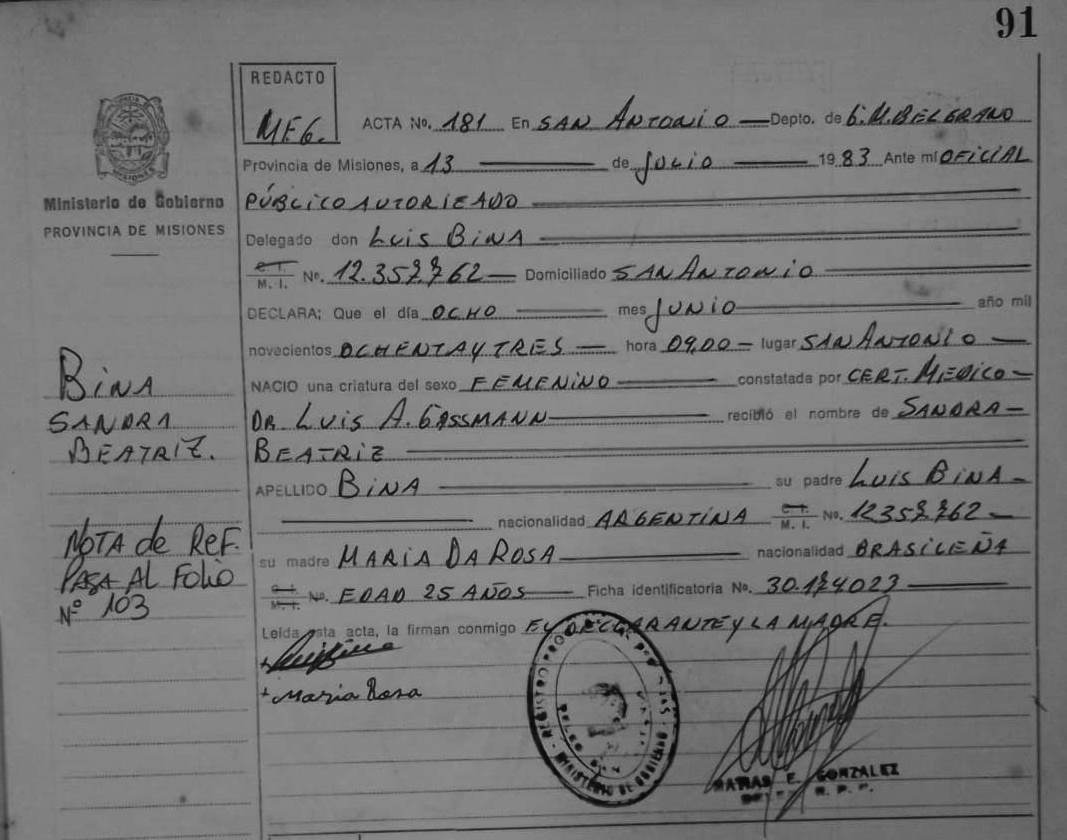 91
REDACTO
MEG.
ACTA No. 181 En SAN ANTONIO Depto. de G.M.BELGRANO
Provincia de Misiones, a 13 de JULIO 1983 Ante mí OFICIAL
PÚBLICO AUTORIZADO
Delegado don LUIS BINA
C.I. M. I. No. 12.357.762 Domiciliado SAN ANTONIO
DECLARA; Que el día OCHO mes JUNIO año mil
novecientos OCHENTA Y TRES hora 09,00 lugar SAN ANTONIO
NACIO una criatura del sexo FEMENINO constatada por CERT. MEDICO
DR. LUIS A. GASSMANN recibió el nombre de SANDRA
BEATRIZ
APELLIDO BINA su padre LUIS BINA
nacionalidad ARGENTINA C.I. M. I. No. 12357.762
su madre MARIA DA ROSA nacionalidad BRASILEÑA
C.I. M.I. No. EDAD 25 AÑOS Ficha identificatoria No. 30.174023
Leída esta acta, la firman conmigo EL DECLARANTE Y LA MADRE.
Maria Rosa
MINISTERIO DE GOBIERNO
MATIAS E. GONZALEZ
Ministerio de Gobierno
PROVINCIA DE MISIONES
BINA
SANDRA
BEATRIZ.
NOTA de REF.
PASA AL FOLIO
Nº 103